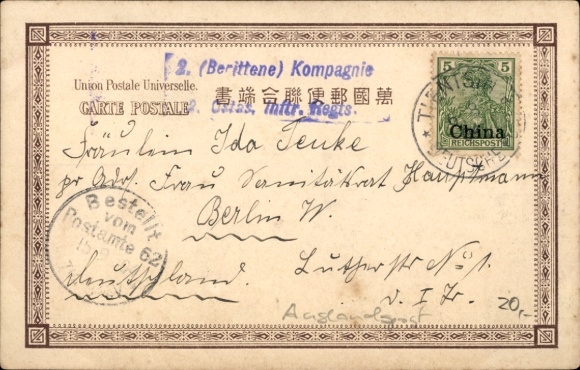 2. (Berittene) Kompagnie
Union Postale Universelle.
書端合聯便郵國萬
CARTE POSTALE
2. Ostas. Inftr. Regts.
5 5
China
REICHSPOST
TIENTSIN
Fräulein Ida Teuke
pr Adr. Frau Sanitätsrat Hauptmann
Berlin W.
Deutschland.
Lutherstr No 1.
v. I Tr.
Bestellt
vom
Postamte 62
Auslandspost
20,-